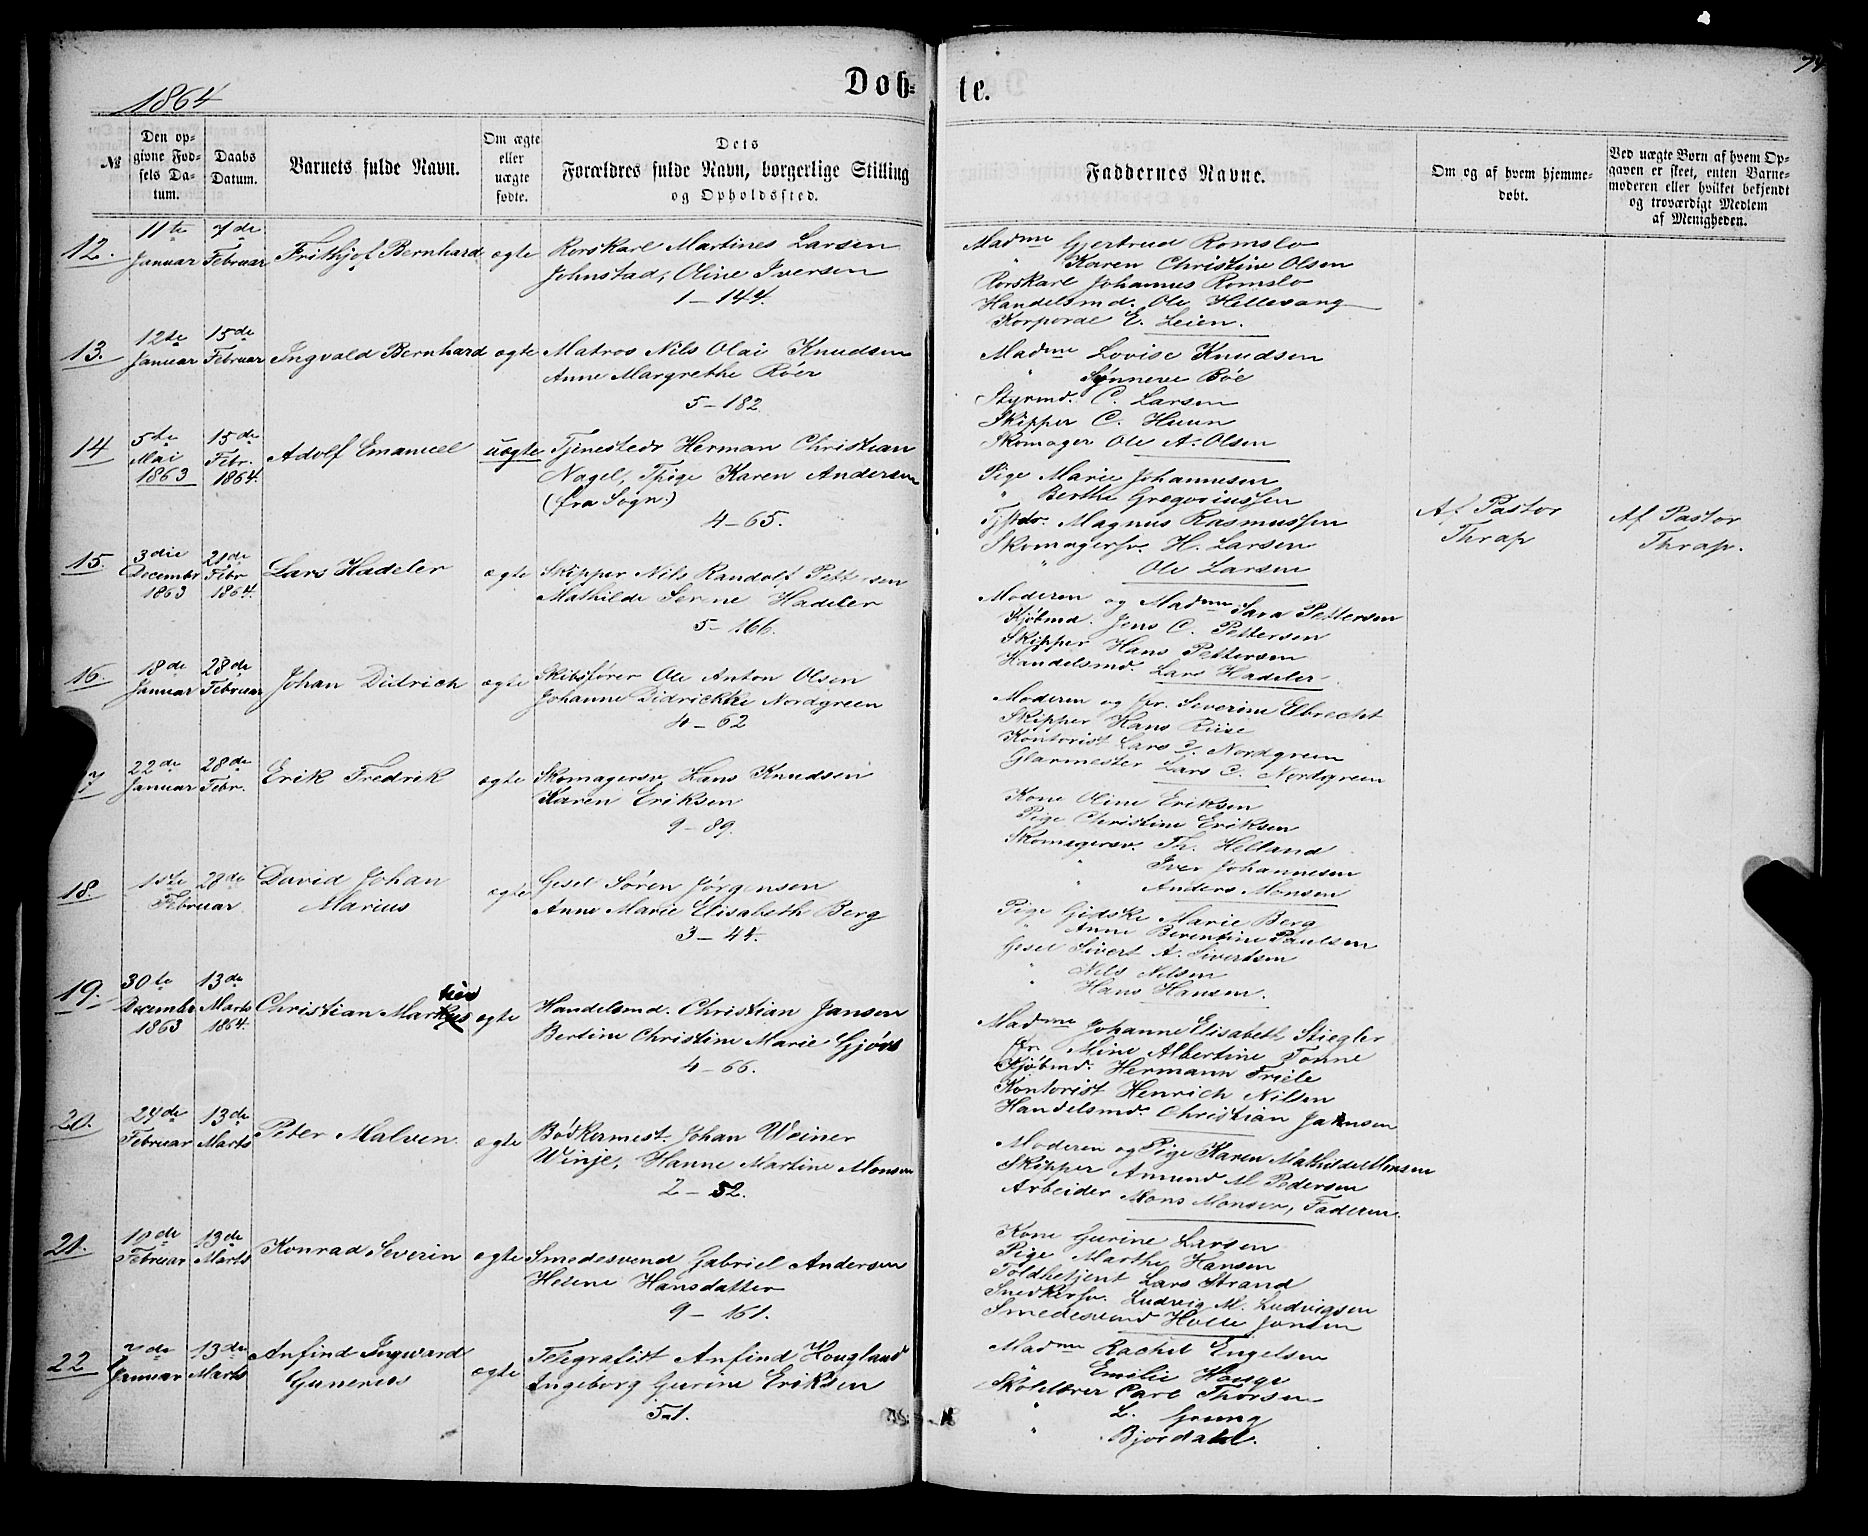 1864
Døb-
te.
74
№
Den op-
givne Fød-
sels Da-
tum.
Daabs
Datum.
Barnets fulde Navn.
Om ægte
eller
uægte
fødte.
Dets
Forældres fulde Navn, borgerlige Stilling
og Opholdssted.
Faddernes Navne.
Om og af hvem hjemme-
døbt.
Ved uægte Børn af hvem Op-
gaven er skeet, enten Barne-
moderen eller hvilket bekjendt
og troværdigt Medlem
af Menigheden.
12.
11te
Januar
7de
Februar
Frithjof Bernhard
ægte
Rorskarl Martines Larsen
Johnstad, Oline Iversen
1-144.
Madme Gjertrud Romslo
" Karen Christine Olsen
Rorskarl Johannes Romslo
Handelsmd. Ole Hellevang
Korporal E. Leien.
13.
12te
Januar
15de
Februar
Ingvald Bernhard
ægte
Matros Nils Olai Knudsen
Anne Margrethe Röer
5-182
Madme Lovise Knudsen
" Synneve Böe
Styrmd. C. Larsen
Skipper C. Huun
Skomager Ole A. Olsen
14
5te
Mai
1863
15de
Febr.
1864.
Adolf Emanuel
uægte
Tjenestedr Herman Christian
Nagel, Tpige Karen Andersen
(fra Sogn.)
4-65.
Pige Marie Johannesen
" Berthe Gregoriussen
Tjstdr. Magnus Rasmussen
Skomagersv. H. Larsen
" Ole Larsen
Af Pastor
Thrap
Af Pastor
Thrap.
15.
3die
December
1863
21de
Febr
1864.
Lars Hadeler
ægte
Skipper Nils Randolf Pettersen
Mathilde Serine Hadeler
5-166.
Moderen og Madme Sara Pettersen
Kjøbmd. Jens C. Pettersen
Skipper Hans Pettersen
Handelsmd. Lars Hadeler
16.
18de
Januar
28de
Februar
Johan Didrich
ægte
Skibsfører Ole Anton Olsen
Johanne Didrickke Nordgreen
4-62
Moderen og Jfr. Severine Elbrecht
Skipper Hans Riise
Kontorist Lars J. Nordgreen
Glarmester Lars C. Nordgreen
7
22de
Januar
28de
Febr.
Erik Fredrik
ægte
Skomagersv. Hans Knudsen
Karen Eriksen
9-89.
Kone Oline Eriksen
Pige Christine Eriksen
Skomagersv. Th. Helland
" Iver Johannesen
" Anders Monsen
18.
28de
Februar
David Johan
Marius
ægte
Gesel Søren Jørgensen
Anne Marie Elisabeth Berg
3-44.
Pige Gidske Marie Berg
" Anne Berentine Paulsen
Gesel Sivert A. Sivertsen
" Nils Nilsen
" Hans Hansen.
19.
30te
December
1863
13de
Marts
1864.
Christian Markus
ægte
Handelsmd. Christian Jansen
Bertine Christine Marie Gjørs
4-66.
Madme Johanne Elisabeth Stiegler
Jfr. Mine Albertine Tonne
Kjøbmd. Hermann Friele
Kontorist Henrich Nilsen
Handelsmd. Christian Jansen
20.
24de
Februar
13de
Marts
Peter Malven
ægte
Bødkermest. Johan Weiner
Winje, Hanne Martine Monsen
2-52.
Moderen og Pige Karen Mathilde Monsen
Skipper Amund M. Pedersen
Arbeider Mons Monsen, Faderen.
21.
Februar
13de
Marts
Konrad Severin
ægte
Smedesvend Gabriel Andersen
Helene Hansdatter
9-161.
Kone Gurine Larsen
Pige Marthe Hansen
Toldbetjent Lars Strand
Snedkersv. Ludvig M. Ludvigsen
Smedesvend Halle Jonsen
22
Januar
13de
Marts
Anfind Ingward
Gunerius
ægte
Telegrafist Anfind Hougland
Ingeborg Gurine Eriksen
5-1.
Madme Rachel Engelsen
" Emilie Hauge
Skolelærer Carl Thorsen
" L. Grung
" Bjordahl.